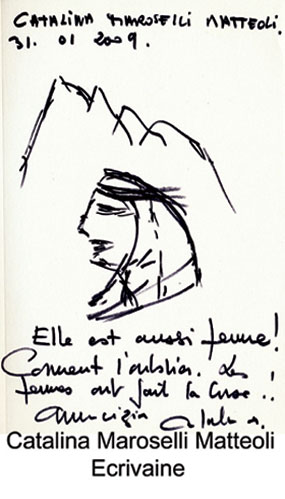 CATALINA MAROSELLI MATTEOLI.
31. 01 2009.
Elle est aussi femme!
Comment l'oublier. Les
femmes ont fait la Corse.!
Amicizia
Catalina Maroselli Matteoli
Ecrivaine